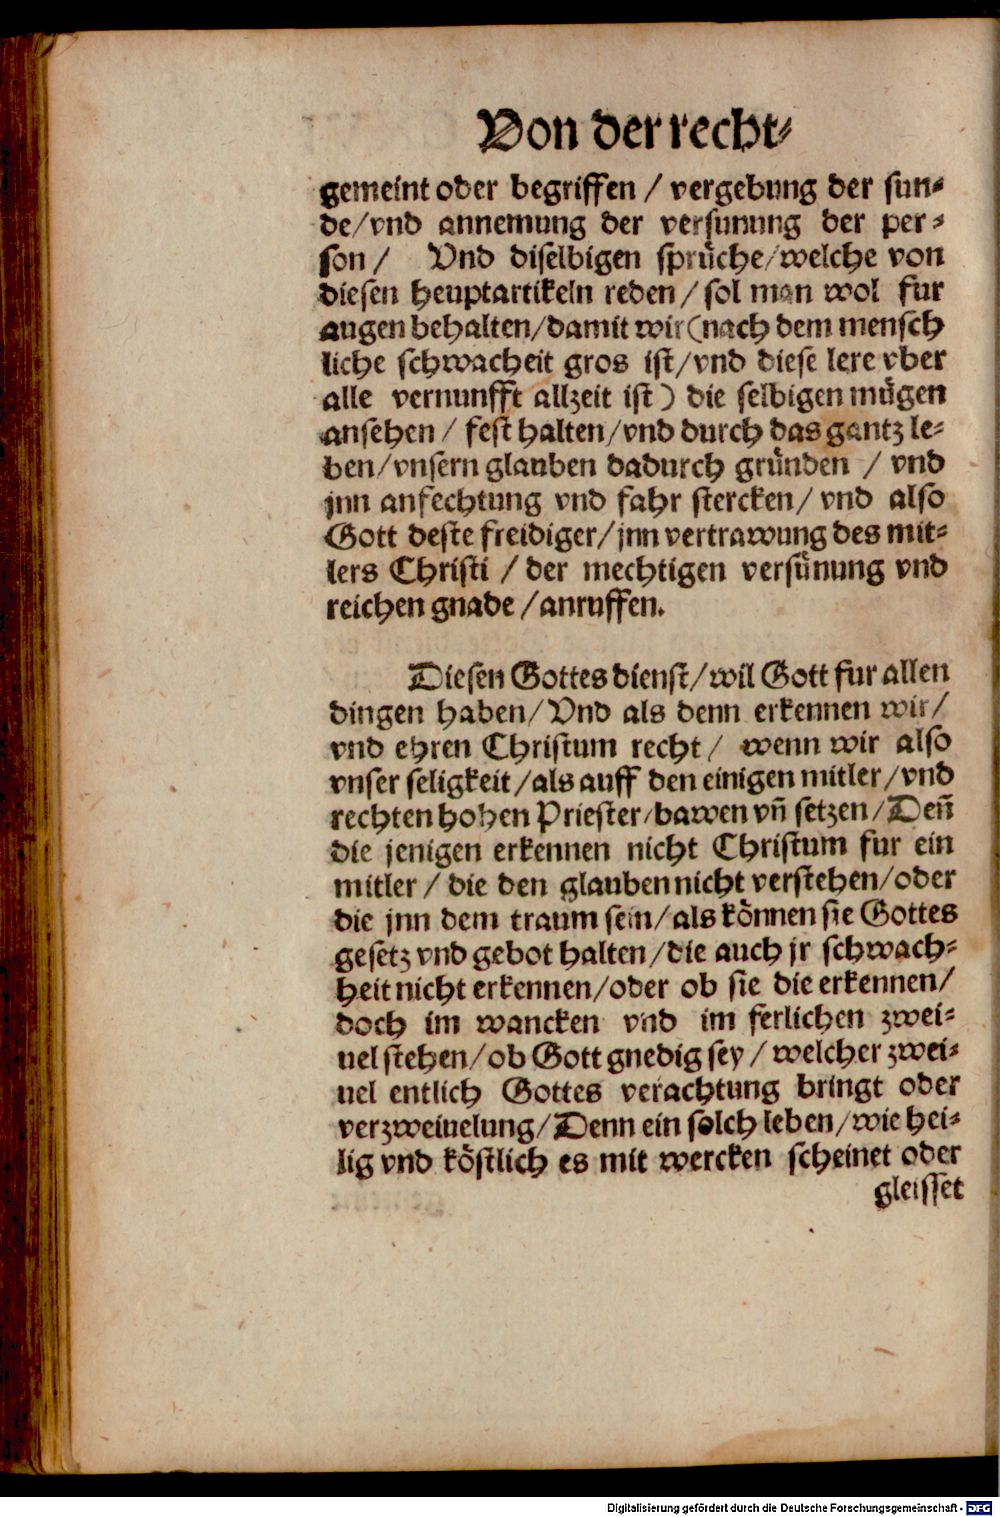 Von der recht⸗
gemeint oder begriffen / vergebung der sun⸗
de/vnd annemung der versunung der per⸗
son / Vnd diselbigen sprüche/welche von
diesen heuptartikeln reden / sol man wol fur
augen behalten/damit wir (nach dem mensch
liche schwacheit gros ist/vnd diese lere vber
alle vernunfft allzeit ist) die selbigen mügen
ansehen / fest halten/vnd durch das gantz le⸗
ben/vnsern glauben dadurch gründen / vnd
jnn anfechtung vnd fahr stercken/ vnd also
Gott deste freidiger/jnn vertrawung des mit⸗
lers Christi / der mechtigen versünung vnd
reichen gnade /anruffen.
Diesen Gottes dienst/wil Gott fur allen
dingen haben/ Vnd als denn erkennen wir/
vnd ehren Christum recht / wenn wir also
vnser seligkeit/als auff den einigen mitler/vnd
rechten hohen Priester/bawen vn̄ setzen/Deñ
die jenigen erkennen nicht Christum fur ein
mitler / die den glauben nicht verstehen/oder
die jnn dem traum sein/als können sie Gottes
gesetz vnd gebot halten/die auch jr schwach⸗
heit nicht erkennen/oder ob sie die erkennen/
doch im wancken vnd im ferlichen zwei⸗
uel stehen/ob Gott gnedig sey / welcher zwei⸗
uel entlich Gottes verachtung bringt oder
verzweiuelung/Denn ein solch leben/wie hei⸗
lig vnd köstlich es mit wercken scheinet oder
gleisset
Digitalisierung gefördert durch die Deutsche Forschungsgemeinschaft - DFG